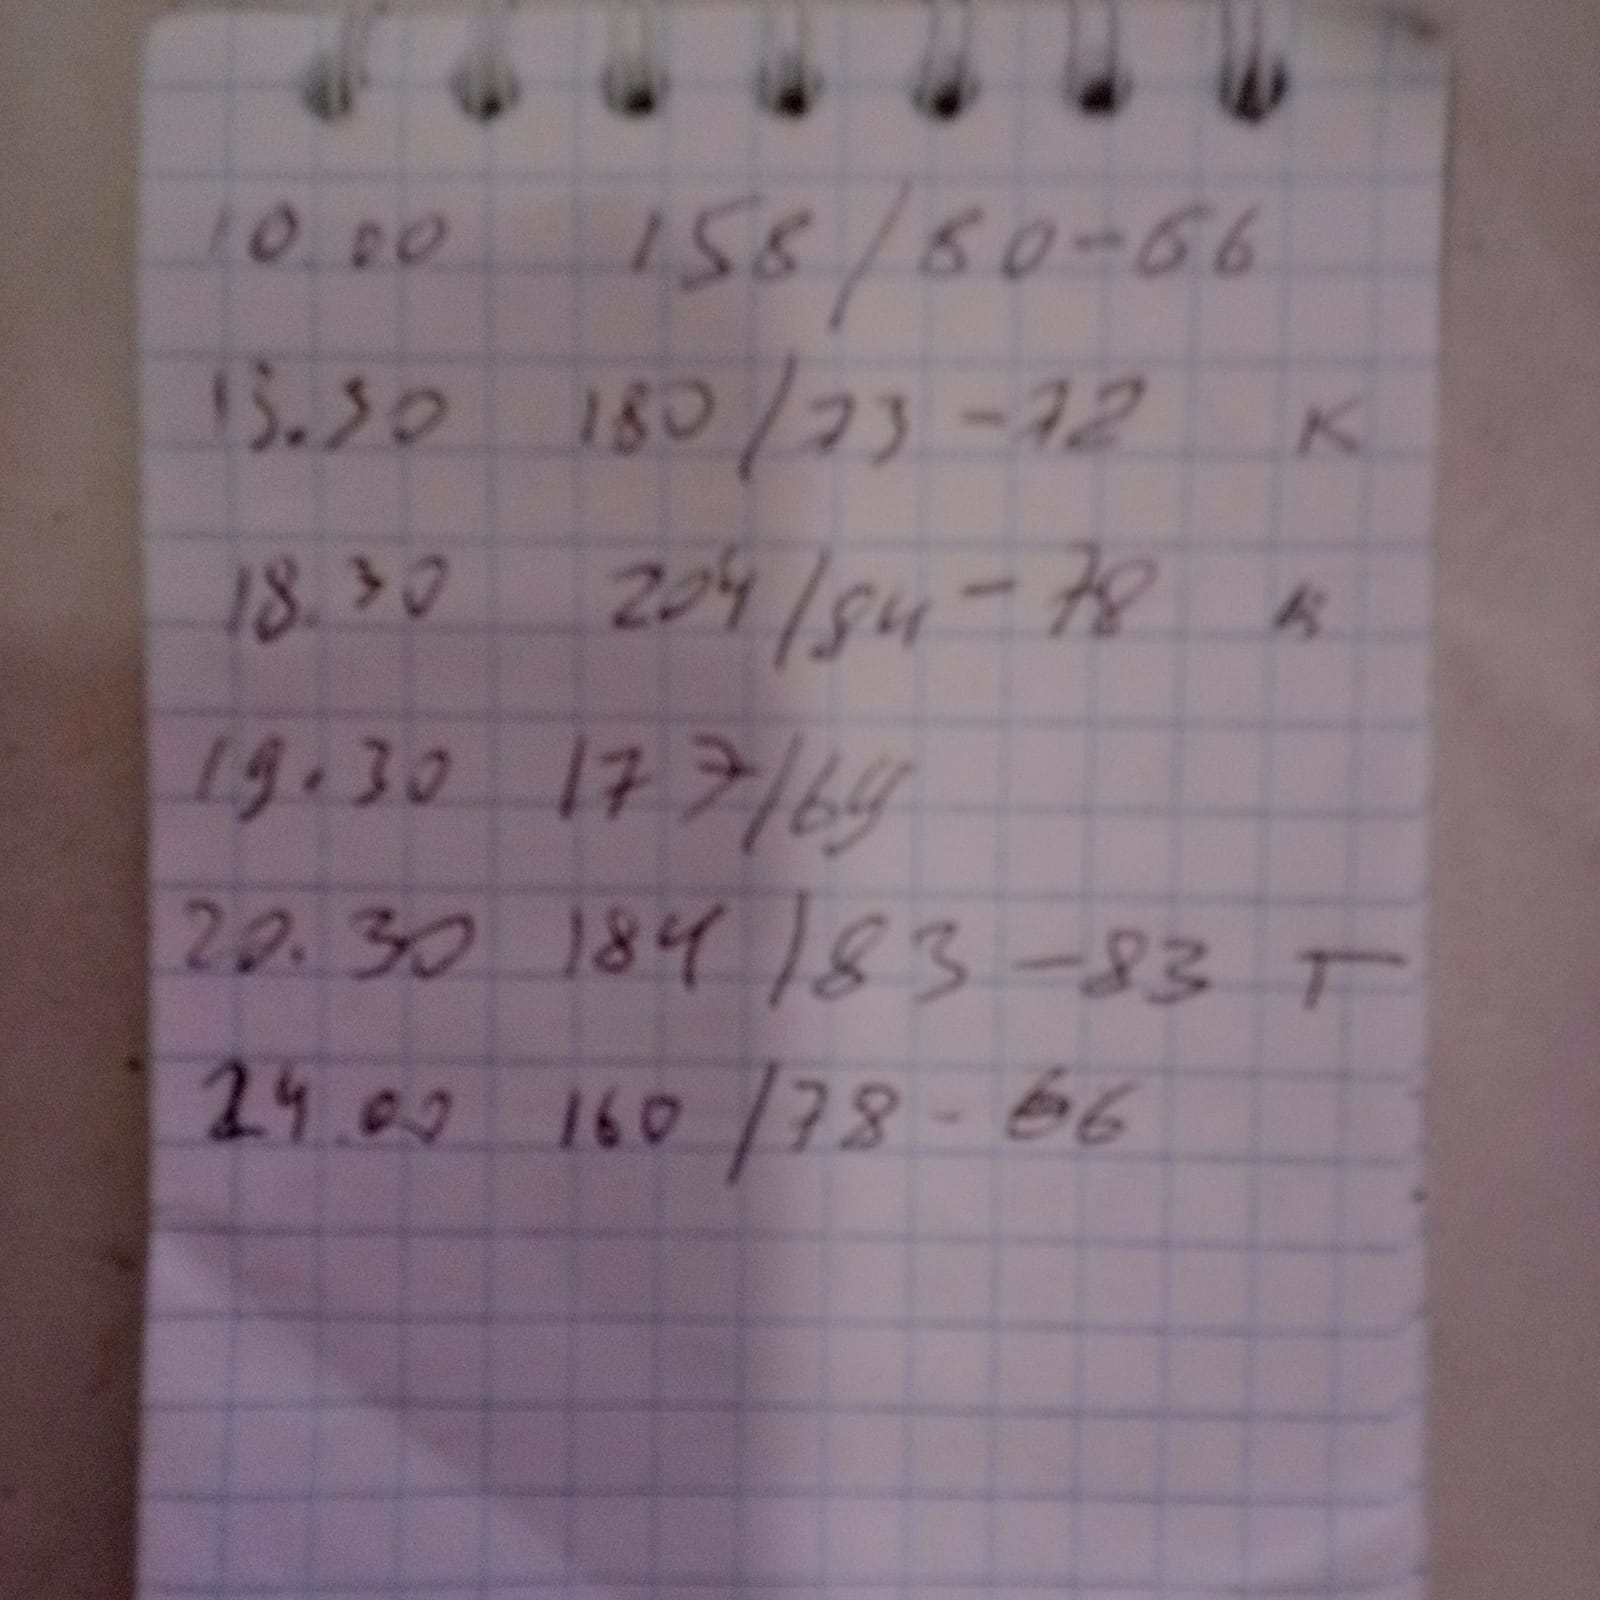 10.00 158/80-66
13.30 180/73-72 К
18.30 204/84-78 К
19.30 177/69
20.30 184/83-83 Т
24.00 160/78-66